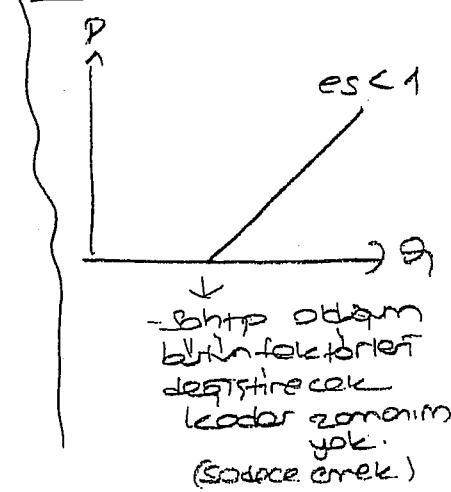 P
es < 1
Q
- Sahip olduğum
bütün faktörleri
değiştirecek
kadar zamanım
yok.
(Sadece emek)